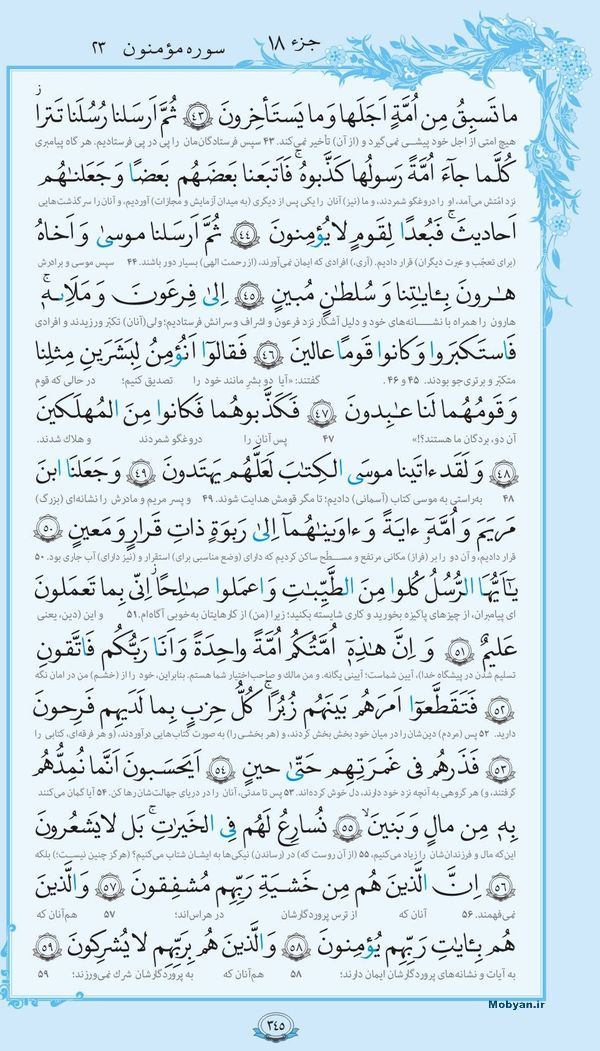 جزء ۱۸
سوره مؤمنون ۲۳
ما تَسبِقُ مِن اُمَّةٍ اَجَلَها وَ ما يَستَأخِرونَ ﴿۴۳﴾ ثُمَّ اَرسَلنا رُسُلَنا تَترا
هیچ امتی از اجل خود پیشی نمی‌گیرد و (از آن) تأخیر نمی‌کند. ۴۳ سپس فرستادگان‌مان را پی در پی فرستادیم. هر گاه پیامبری
كُلَّما جاءَ اُمَّةً رَسولُها كَذَّبوهُ ۚ فَاَتبَعنا بَعضَهُم بَعضًا وَ جَعَلنٰهُم
نزد امّتش می‌آمد، او را دروغگو شمردند، و ما (نیز) آنان را یکی پس از دیگری (به میدان آزمایش و مجازات) آوردیم، و آنان را سرگذشت‌هایی
اَحاديثَ ۚ فَبُعدًا لِقَومٍ لا يُؤمِنونَ ﴿۴۴﴾ ثُمَّ اَرسَلنا موسىٰ وَ اَخاهُ
(برای تعجّب و عبرت دیگران) قرار دادیم. (آری،) افرادی که ایمان نمی‌آورند، (از رحمت الهی) بسیار دور باشند. ۴۴ سپس موسی و برادرش
هٰرونَ بِـٔايٰتِنا وَ سُلطٰنٍ مُبينٍ ﴿۴۵﴾ اِلىٰ فِرعَونَ وَ مَلَا۟ئِهٖ
هارون را همراه با نشانه‌های خود و دلیل آشکار نزد فرعون و اشراف و سرانش فرستادیم؛ ولی (آنان) تکبّر ورزیدند و افرادی
فَاستَكبَروا وَ كانوا قَومًا عالينَ ﴿۴۶﴾ فَقالوٓا اَنُؤمِنُ لِبَشَرَينِ مِثلِنا
متکبّر و برتری‌جو بودند. ۴۵ و ۴۶. گفتند: «آیا دو بشر مانند خود را تصدیق کنیم؛ در حالی که قوم
وَ قَومُهُما لَنا عٰبِدونَ ﴿۴۷﴾ فَكَذَّبوهُما فَكانوا مِنَ المُهلَكينَ
آن دو، بردگان ما هستند؟!» ۴۷ پس آنان را دروغگو شمردند و هلاک شدند.
﴿۴۸﴾ وَ لَقَد ءاتَينا موسَى الكِتٰبَ لَعَلَّهُم يَهتَدونَ ﴿۴۹﴾ وَ جَعَلنَا ابنَ
۴۸ به‌راستی به موسی کتاب (آسمانی) دادیم؛ تا مگر قومش هدایت شوند. ۴۹ و پسر مریم و مادرش را نشانه‌ای (بزرگ)
مَريَمَ وَ اُمَّهٗٓ ءايَةً وَ ءاوَينٰهُمآ اِلىٰ رَبوَةٍ ذاتِ قَرارٍ وَ مَعينٍ ﴿۵۰﴾
قرار دادیم، و آن دو را بر (فراز) مکانی مرتفع و مسطّح ساکن کردیم که دارای (وضع مناسبی برای) استقرار و (نیز دارای) آب جاری بود. ۵۰
يٰٓاَيُّهَا الرُّسُلُ كُلوا مِنَ الطَّيِّبٰتِ وَ اعمَلوا صٰلِحًا ۖ اِنّى بِما تَعمَلونَ
ای پیامبران، از چیزهای پاکیزه بخورید و کاری شایسته بکنید؛ زیرا (من) از کارهایتان به‌خوبی آگاه‌ام. ۵۱ و این (دین، یعنی
عَليمٌ ﴿۵۱﴾ وَ اِنَّ هٰذِهٖٓ اُمَّتُكُم اُمَّةً واحِدَةً وَ اَنَا رَبُّكُم فَاتَّقونِ
تسلیم شدن در پیشگاه خدا)، آیین شماست؛ آیینی یگانه. و من مالک و صاحب‌اختیار شما هستم. بنابراین، خود را از (خشم) من در امان نگه
﴿۵۲﴾ فَتَقَطَّعوٓا اَمرَهُم بَينَهُم زُبُرًا ۖ كُلُّ حِزبٍ بِما لَدَيهِم فَرِحونَ
دارید. ۵۲ پس (مردم) دین‌شان را در میان خود بخش بخش کردند، و (هر بخشی را) به صورت کتاب‌هایی درآوردند، (و هر فرقه‌ای، کتابی را
﴿۵۳﴾ فَذَرهُم فى غَمرَتِهِم حَتّىٰ حينٍ ﴿۵۴﴾ اَيَحسَبونَ اَنَّما نُمِدُّهُم
گرفتند، و) هر گروهی به آنچه نزد خود دارند، دل خوش کرده‌اند. ۵۳ پس تا مدتی، آنان را در دریای جهالت‌شان رها کن. ۵۴ آیا گمان می‌کنند
بِهٖ مِن مالٍ وَ بَنينَ ﴿۵۵﴾ نُسارِعُ لَهُم فِى الخَيرٰتِ ۚ بَل لا يَشعُرونَ
این‌که مال و فرزندان‌شان را زیاد می‌کنیم، ۵۵ (از آن روست که) در (رساندن) نیکی‌ها به ایشان شتاب می‌کنیم؟ (هرگز چنین نیست؛) بلکه
﴿۵۶﴾ اِنَّ الَّذينَ هُم مِن خَشيَةِ رَبِّهِم مُشفِقونَ ﴿۵۷﴾ وَ الَّذينَ
نمی‌فهمند. ۵۶ آنان که از ترس پروردگارشان در هراس‌اند؛ ۵۷ هم‌آنان که
هُم بِـٔايٰتِ رَبِّهِم يُؤمِنونَ ﴿۵۸﴾ وَ الَّذينَ هُم بِرَبِّهِم لا يُشرِكونَ ﴿۵۹﴾
به آیات و نشانه‌های پروردگارشان ایمان دارند؛ ۵۸ هم‌آنان که به پروردگارشان شرک نمی‌ورزند؛ ۵۹
Mobyan.ir
۳۴۵